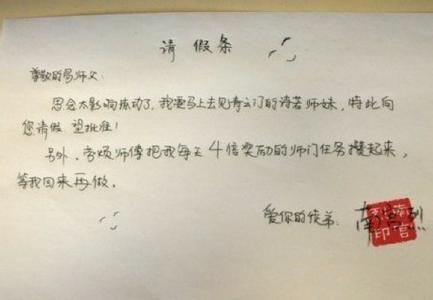 请假条
尊敬的易师父:
忍会太影响振动了,我要马上去见青云门的诗若师妹,特此向
您请假 望批准!
另外,劳烦师傅把我每天4倍奖励的师门任务攒起来,
等我回来再做。
爱你的徒弟:南宫烈